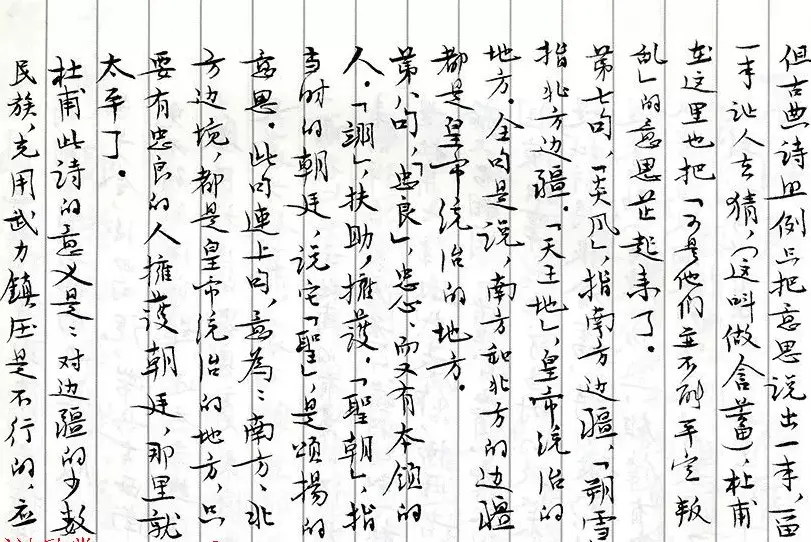 但古典詩照例只把意思说出一半,留
一半让人去猜,(这叫做含蓄),杜甫
在这里也把「可是他们並不能平定叛
乱」的意思藏起来了。
第七句,「炎风」,指南方边疆,「朔雪
指北方边疆。「天王地」,皇帝统治的
地方。全句是说,南方和北方的边疆
都是皇帝统治的地方。
第八句,「忠良」,忠心、而又有本领的
人。「翊」,扶助,擁護。「聖朝」,指
当时的朝廷,说它「聖」,是頌揚的
意思。此句連上句,意為:南方、北
方边境,都是皇帝统治的地方,只
要有忠良的人擁護朝廷,那里就
太平了。
杜甫此詩的意义是:对边疆的少数
民族,光用武力鎮压是不行的,应